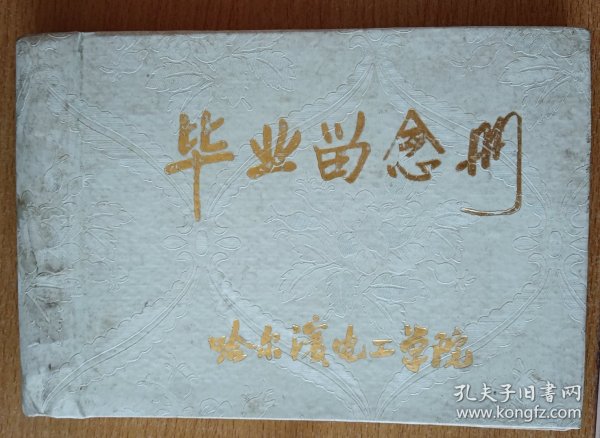 毕业留念册
哈尔滨电工学院
孔夫子旧书网
www.kongfz.com